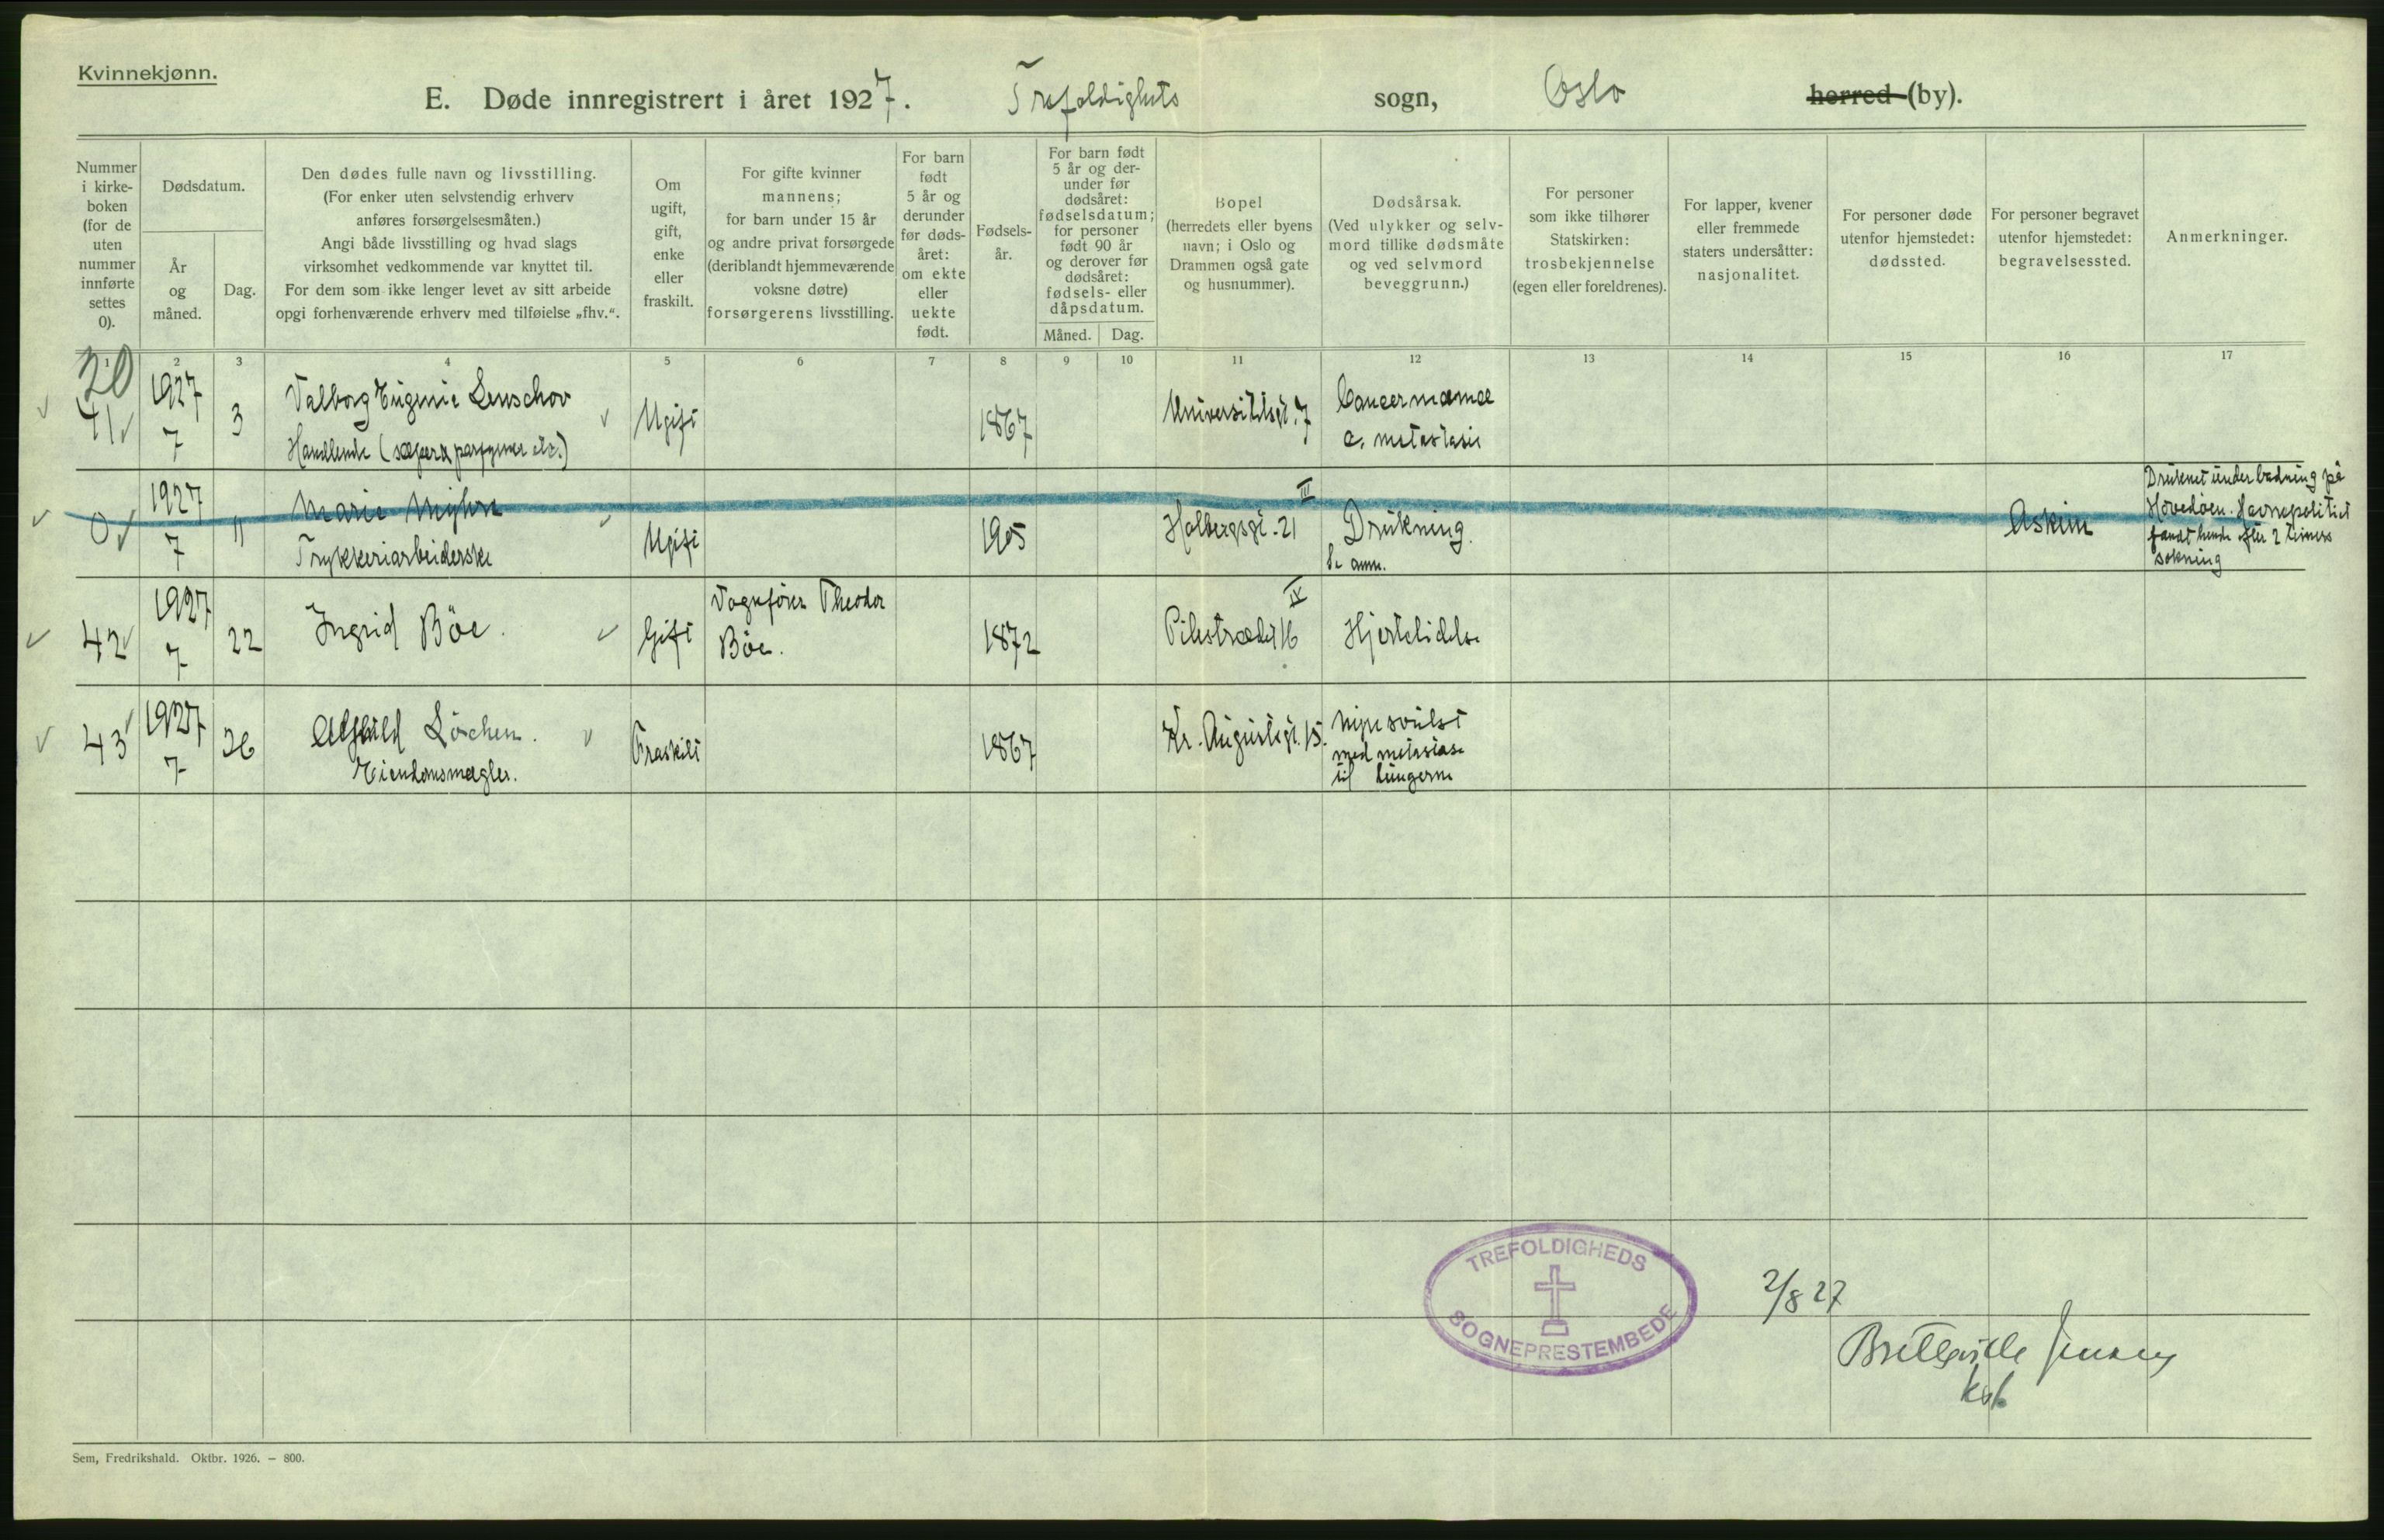 Kvinnekjønn.
E. Døde innregistrert i året 1927. Trefoldighets sogn, Oslo herred (by).
Nummer
i kirke-
boken
(for de
uten
nummer
innførte
settes
0).
Dødsdatum.
År
og
måned.
Dag.
Den dødes fulle navn og livsstilling.
(For enker uten selvstendig erhverv
anføres forsørgelsesmåten.)
Angi både livsstilling og hvad slags
virksomhet vedkommende var knyttet til.
For dem som ikke lenger levet av sitt arbeide
opgi forhenværende erhverv med tilføielse „fhv.“.
Om
ugift,
gift,
enke
eller
fraskilt.
For gifte kvinner
mannens;
for barn under 15 år
og andre privat forsørgede
(deriblandt hjemmeværende
voksne døtre)
forsørgerens livsstilling.
For barn
født
5 år og
derunder
før døds-
året:
om ekte
eller
uekte
født.
Fødsels-
år.
For barn født
5 år og der-
under før
dødsåret:
fødselsdatum;
for personer
født 90 år
og derover før
dødsåret:
fødsels- eller
dåpsdatum.
Måned. Dag.
Bopel
(herredets eller byens
navn; i Oslo og
Drammen også gate
og husnummer).
Dødsårsak.
(Ved ulykker og selv-
mord tillike dødsmåte
og ved selvmord
beveggrunn.)
For personer
som ikke tilhører
Statskirken:
trosbekjennelse
(egen eller foreldrenes).
For lapper, kvener
eller fremmede
staters undersåtter:
nasjonalitet.
For personer døde
utenfor hjemstedet:
dødssted.
For personer begravet
utenfor hjemstedet:
begravelsessted.
Anmerkninger.
1 2 3 4 5 6 7 8 9 10 11 12 13 14 15 16 17
20
41
1927
7
3
Valborg Eugenie Lenschov
Handlende (sæper & parfymer etc.)
Ugift
1867
Universitetsgt. 7
Cancer mamæ
c. metastasis
0
1927
7
11
Marie Myhre
Trykkeriarbeiderske
Ugift
1905
III
Holbergsgt. 21
Drukning.
Se anm.
Askim
Druknet under badning på
Hovedøen. Havnepolitiet
fandt hende efter 2 timers
søkning
42
1927
7
22
Ingrid Böe.
Gift
Vognfører Theodor
Böe.
1872
IV
Pilestrædet 16
Hjertelidelse
43
1927
7
26
Alfhild Löchen.
Eiendomsmægler.
Fraskilt
1867
Kr. Augustsgt. 15.
Nyresvulst
med metastase
til lungerne
TREFOLDIGHEDS
SOGNEPRESTEMBEDE
2/8 27
Bretteville Jensen
Sem, Fredrikshald. Oktbr. 1926. — 800.